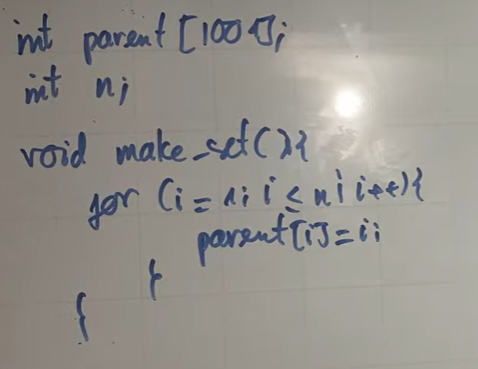 int parent [1001];
int n;
void make_set(){
for (i = 1; i ≤ n; i++){
parent[i]=i;
}
{